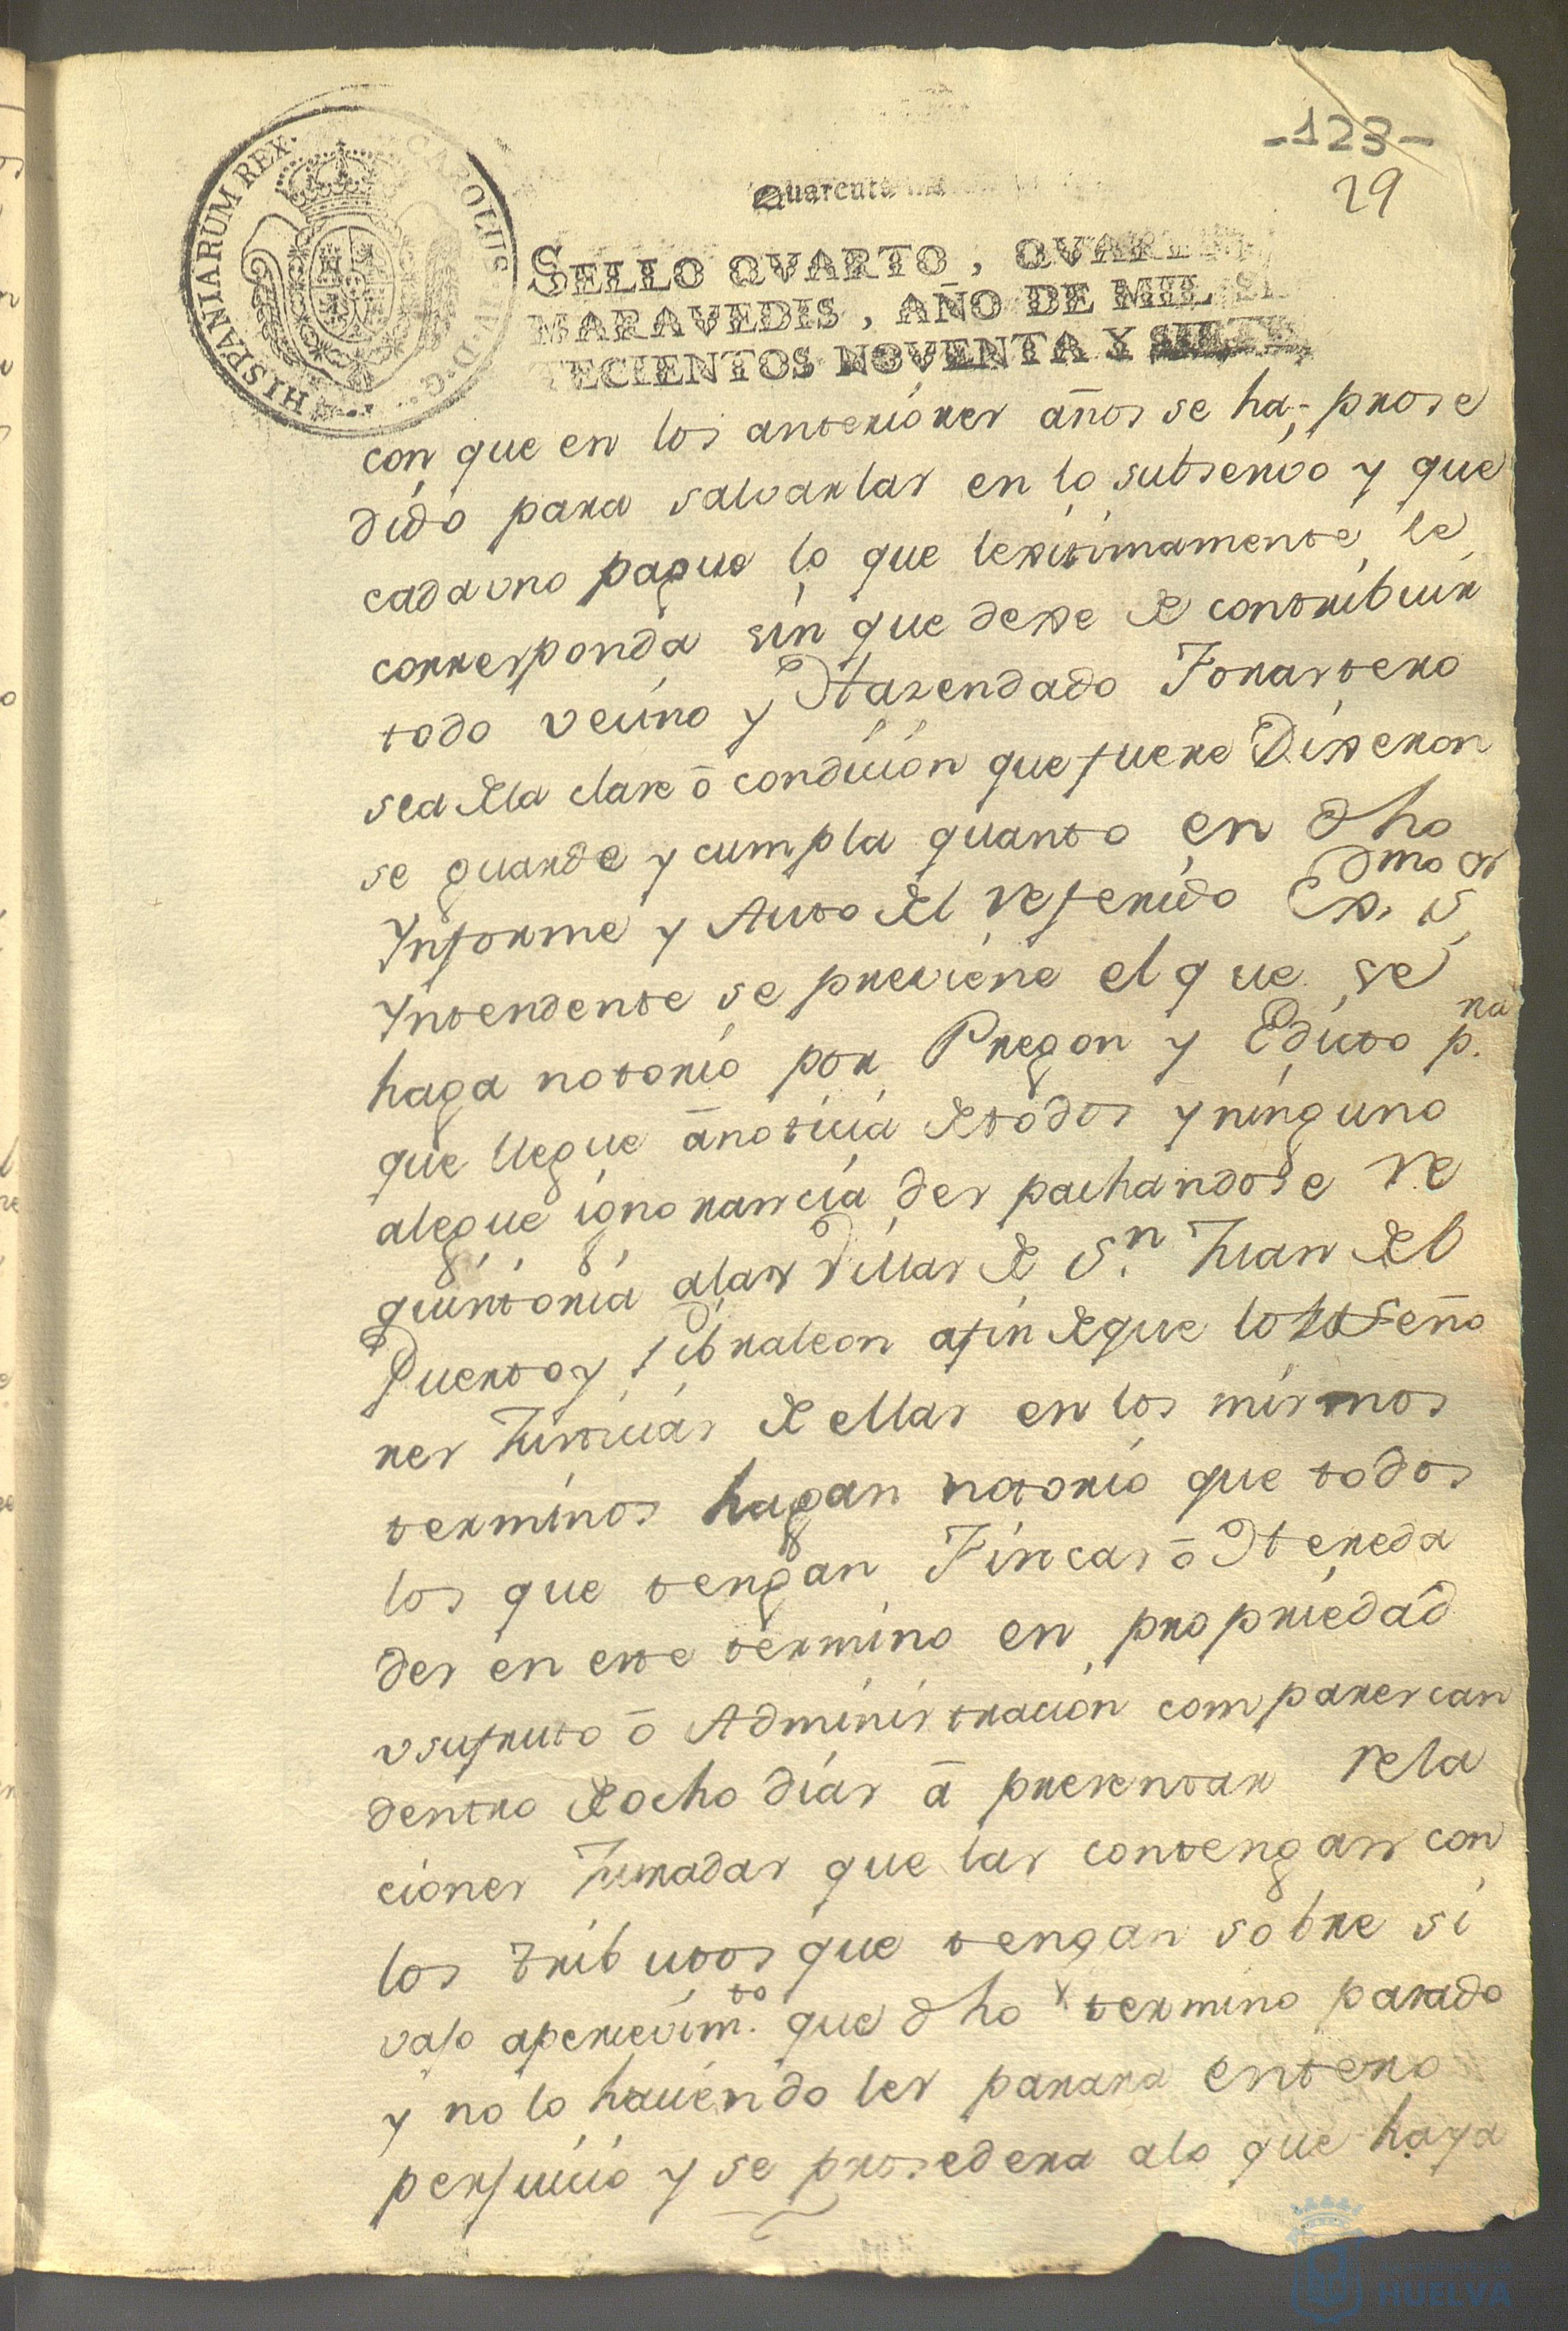 -123-
29
HISPANIARUM REX. CAROLUS IV D. G.
Quarenta
SELLO QVARTO, QVAREN
MARAVEDIS, AÑO DE MIL SE
TECIENTOS NOVENTA Y SIETE
con que en los anteriores años se ha prose
dido para salvarlas en lo subsesivo y que
cada uno pague lo que lexitimamente le
corresponda sin que dexe de contribuir
todo vecino y Hazendado Forastero
sea de la clase ō condicion que fuere Dixeron
se guarde y cumpla quanto en dho
Ynforme y Auto del referido Exmo Sr
Yntendente se previene el que se
haga notorio por Pregon y Edicto pra
que llegue ā noticia de todos y ninguno
alegue ignorancia despachandose re
quintoria a las Villas de Sn Juan del
Puerto y Gibraleon afin de que los Seño
res Justicias de ellas en los mismos
terminos hagan notorio que todos
los que tengan Fincas ō Hereda
des en este termino en propriedad
usufruto ō Administracion comparescan
dentro de ocho dias ā presentar rela
ciones Juradas que las contengan con
los tributos que tengan sobre si
vajo apercevimto que dho termino pasado
y no lo haciendo les parara entero
perjuicio y se prosedera alo que haya
HUELVA